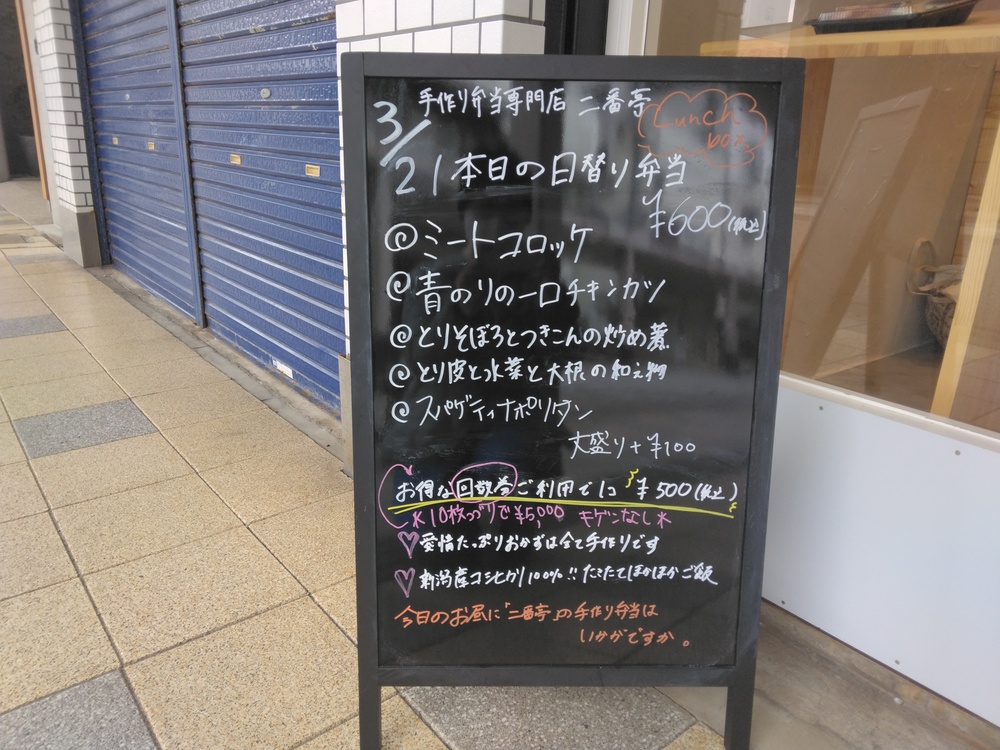 手作り弁当専門店 二番亭
Lunch
box
3/21 本日の日替り弁当
¥600(税込)
@ミートコロッケ
@青のりの一口チキンカツ
@とりそぼろとつきこんの炒め煮
@とり皮と水菜と大根の和え物
@スパゲティナポリタン
大盛り+¥100
お得な回数券ご利用で1コ ¥500(税込)
*10枚つづりで¥5,000 キゲンなし*
♡愛情たっぷりおかずは全て手作りです
♡新潟産コシヒカリ100%!! たきたてほかほかご飯
今日のお昼に「二番亭」の手作り弁当は
いかがですか。